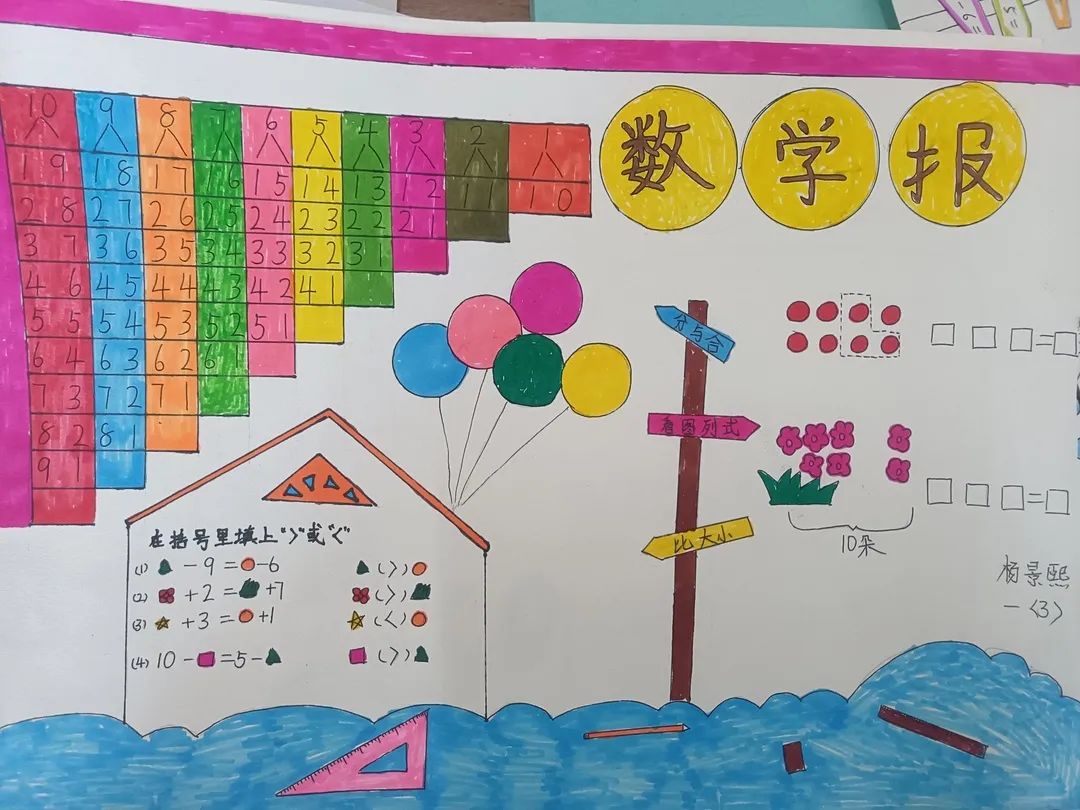 数学报
10 9 8 7 6 5 4 3 2 1
1 9 1 8 1 7 1 6 1 5 1 4 1 3 1 2 1 1 1 0
2 8 2 7 2 6 2 5 2 4 2 3 2 2 2 1
3 7 3 6 3 5 3 4 3 3 3 2 3 1
4 6 4 5 4 4 4 3 4 2 4 1
5 5 5 4 5 3 5 2 5 1
6 4 6 3 6 2 6 1
7 3 7 2 7 1
8 2 8 1
9 1
分与合
□ □ □=□
看图列式
□ □ □=□
10朵
比大小
在括号里填上“>”或“<”
(1) ▲ - 9 = ● - 6 ▲ (>) ●
(2) + 2 = + 7 (>)
(3) ☆ + 3 = ● + 1 ☆ (<) ●
(4) 10 - ■ = 5 - ▲ ■ (>) ▲
杨景熙
一<3>